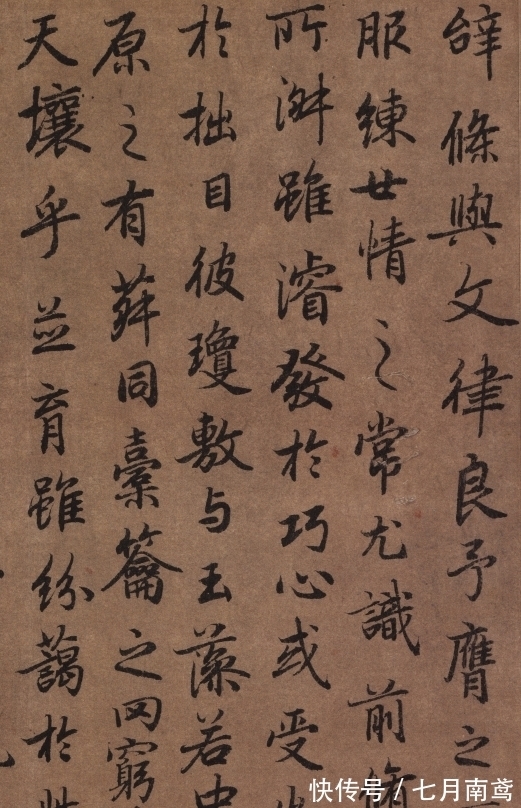 辭條與文律良予膺之
服練世情之常尤識前脩
所淑雖濬發於巧心或受
於拙目彼瓊敷与玉藻若中
原之有菽同橐籥之罔窮
天壤乎並育雖紛藹於此
快传号 / 七月南鸢